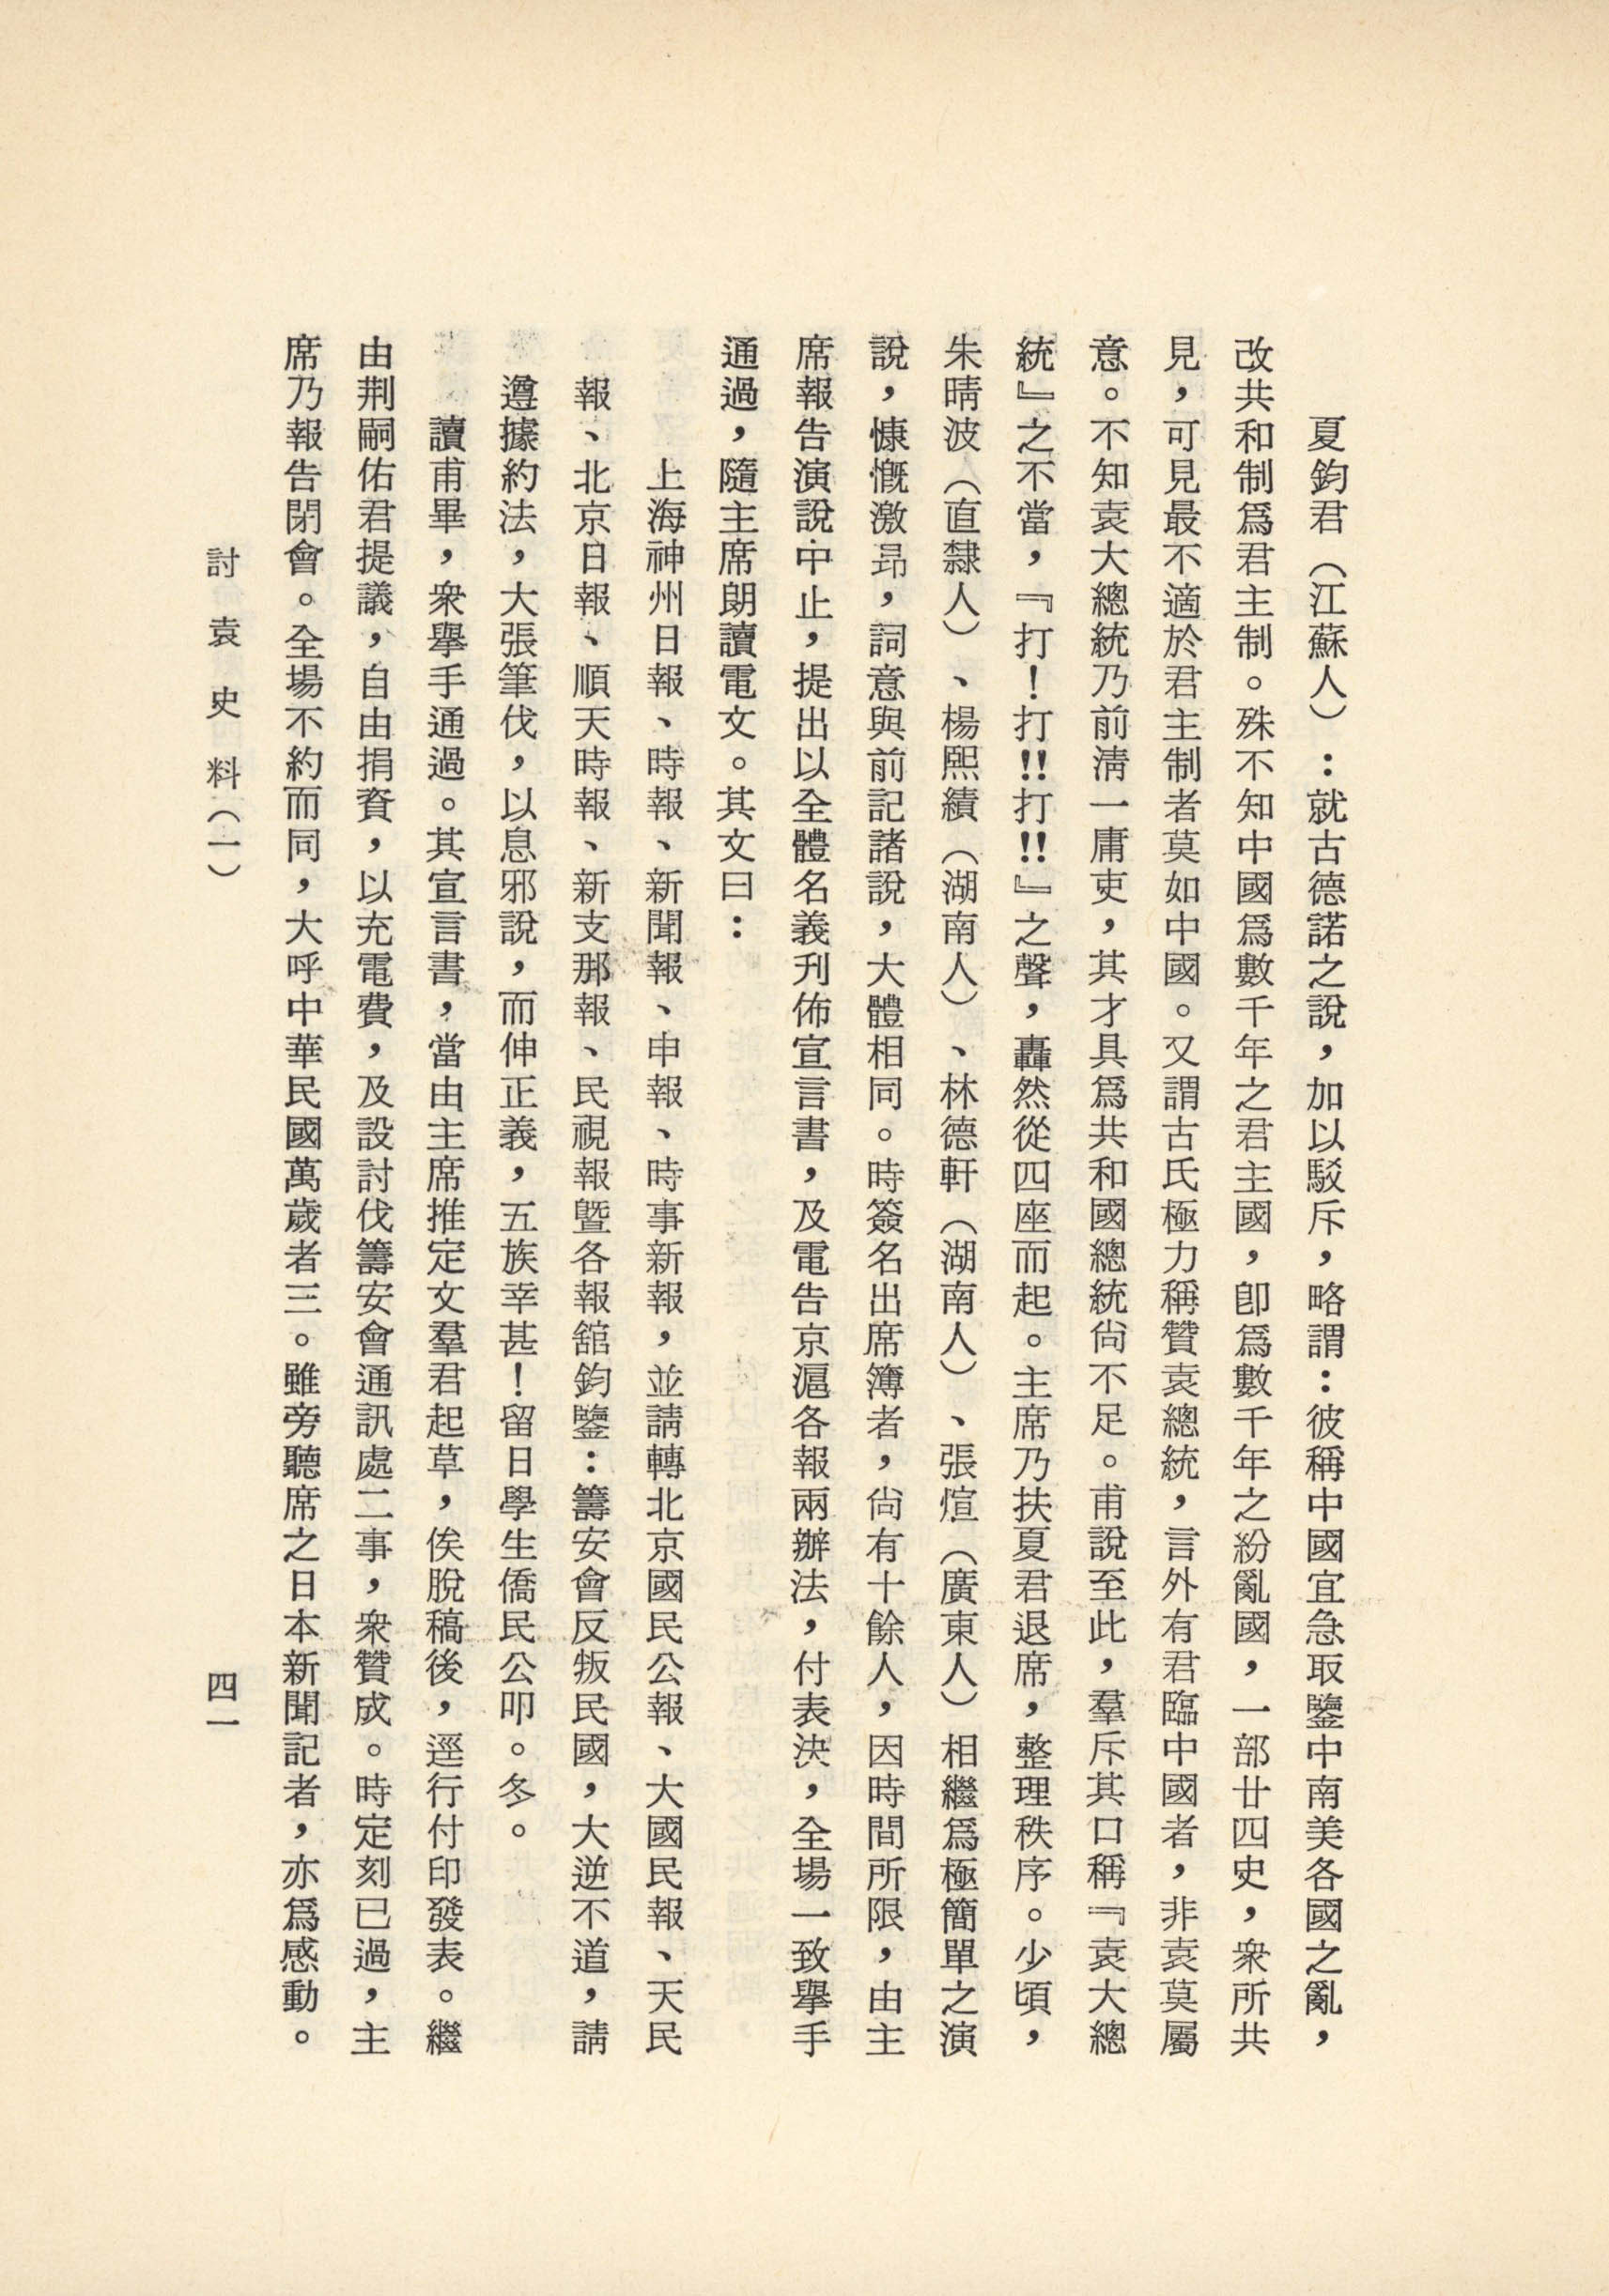 夏鈞君（江蘇人）：就古德諾之說，加以駁斥，略謂：彼稱中國宜急取鑒中南美各國之亂，
改共和制爲君主制。殊不知中國爲數千年之君主國，卽爲數千年之紛亂國，一部廿四史，衆所共
見，可見最不適於君主制者莫如中國。又謂古氏極力稱贊袁總統，言外有君臨中國者，非袁莫屬
意。不知袁大總統乃前淸一庸吏，其才具爲共和國總統尙不足。甫說至此，羣斥其口稱『袁大總
統』之不當，『打！打!!打!!』之聲，轟然從四座而起。主席乃扶夏君退席，整理秩序。少頃，
朱晴波（直隸人）、楊熙績（湖南人）、林德軒（湖南人）、張煊（廣東人）相繼爲極簡單之演
說，慷慨激昂，詞意與前記諸說，大體相同。時簽名出席簿者，尙有十餘人，因時間所限，由主
席報告演說中止，提出以全體名義刋佈宣言書，及電告京滬各報兩辦法，付表決，全場一致擧手
通過，隨主席朗讀電文。其文曰：
上海神州日報、時報、新聞報、申報、時事新報，並請轉北京國民公報、大國民報、天民
報、北京日報、順天時報、新支那報、民視報曁各報舘鈞鑒：籌安會反叛民國，大逆不道，請
遵據約法，大張筆伐，以息邪說，而伸正義，五族幸甚！留日學生僑民公叩。冬。
讀甫畢，衆擧手通過。其宣言書，當由主席推定文羣君起草，俟脫稿後，逕行付印發表。繼
由荆嗣佑君提議，自由捐資，以充電費，及設討伐籌安會通訊處二事，衆贊成。時定刻已過，主
席乃報告閉會。全場不約而同，大呼中華民國萬歲者三。雖旁聽席之日本新聞記者，亦爲感動。
討袁史料（一）
四一